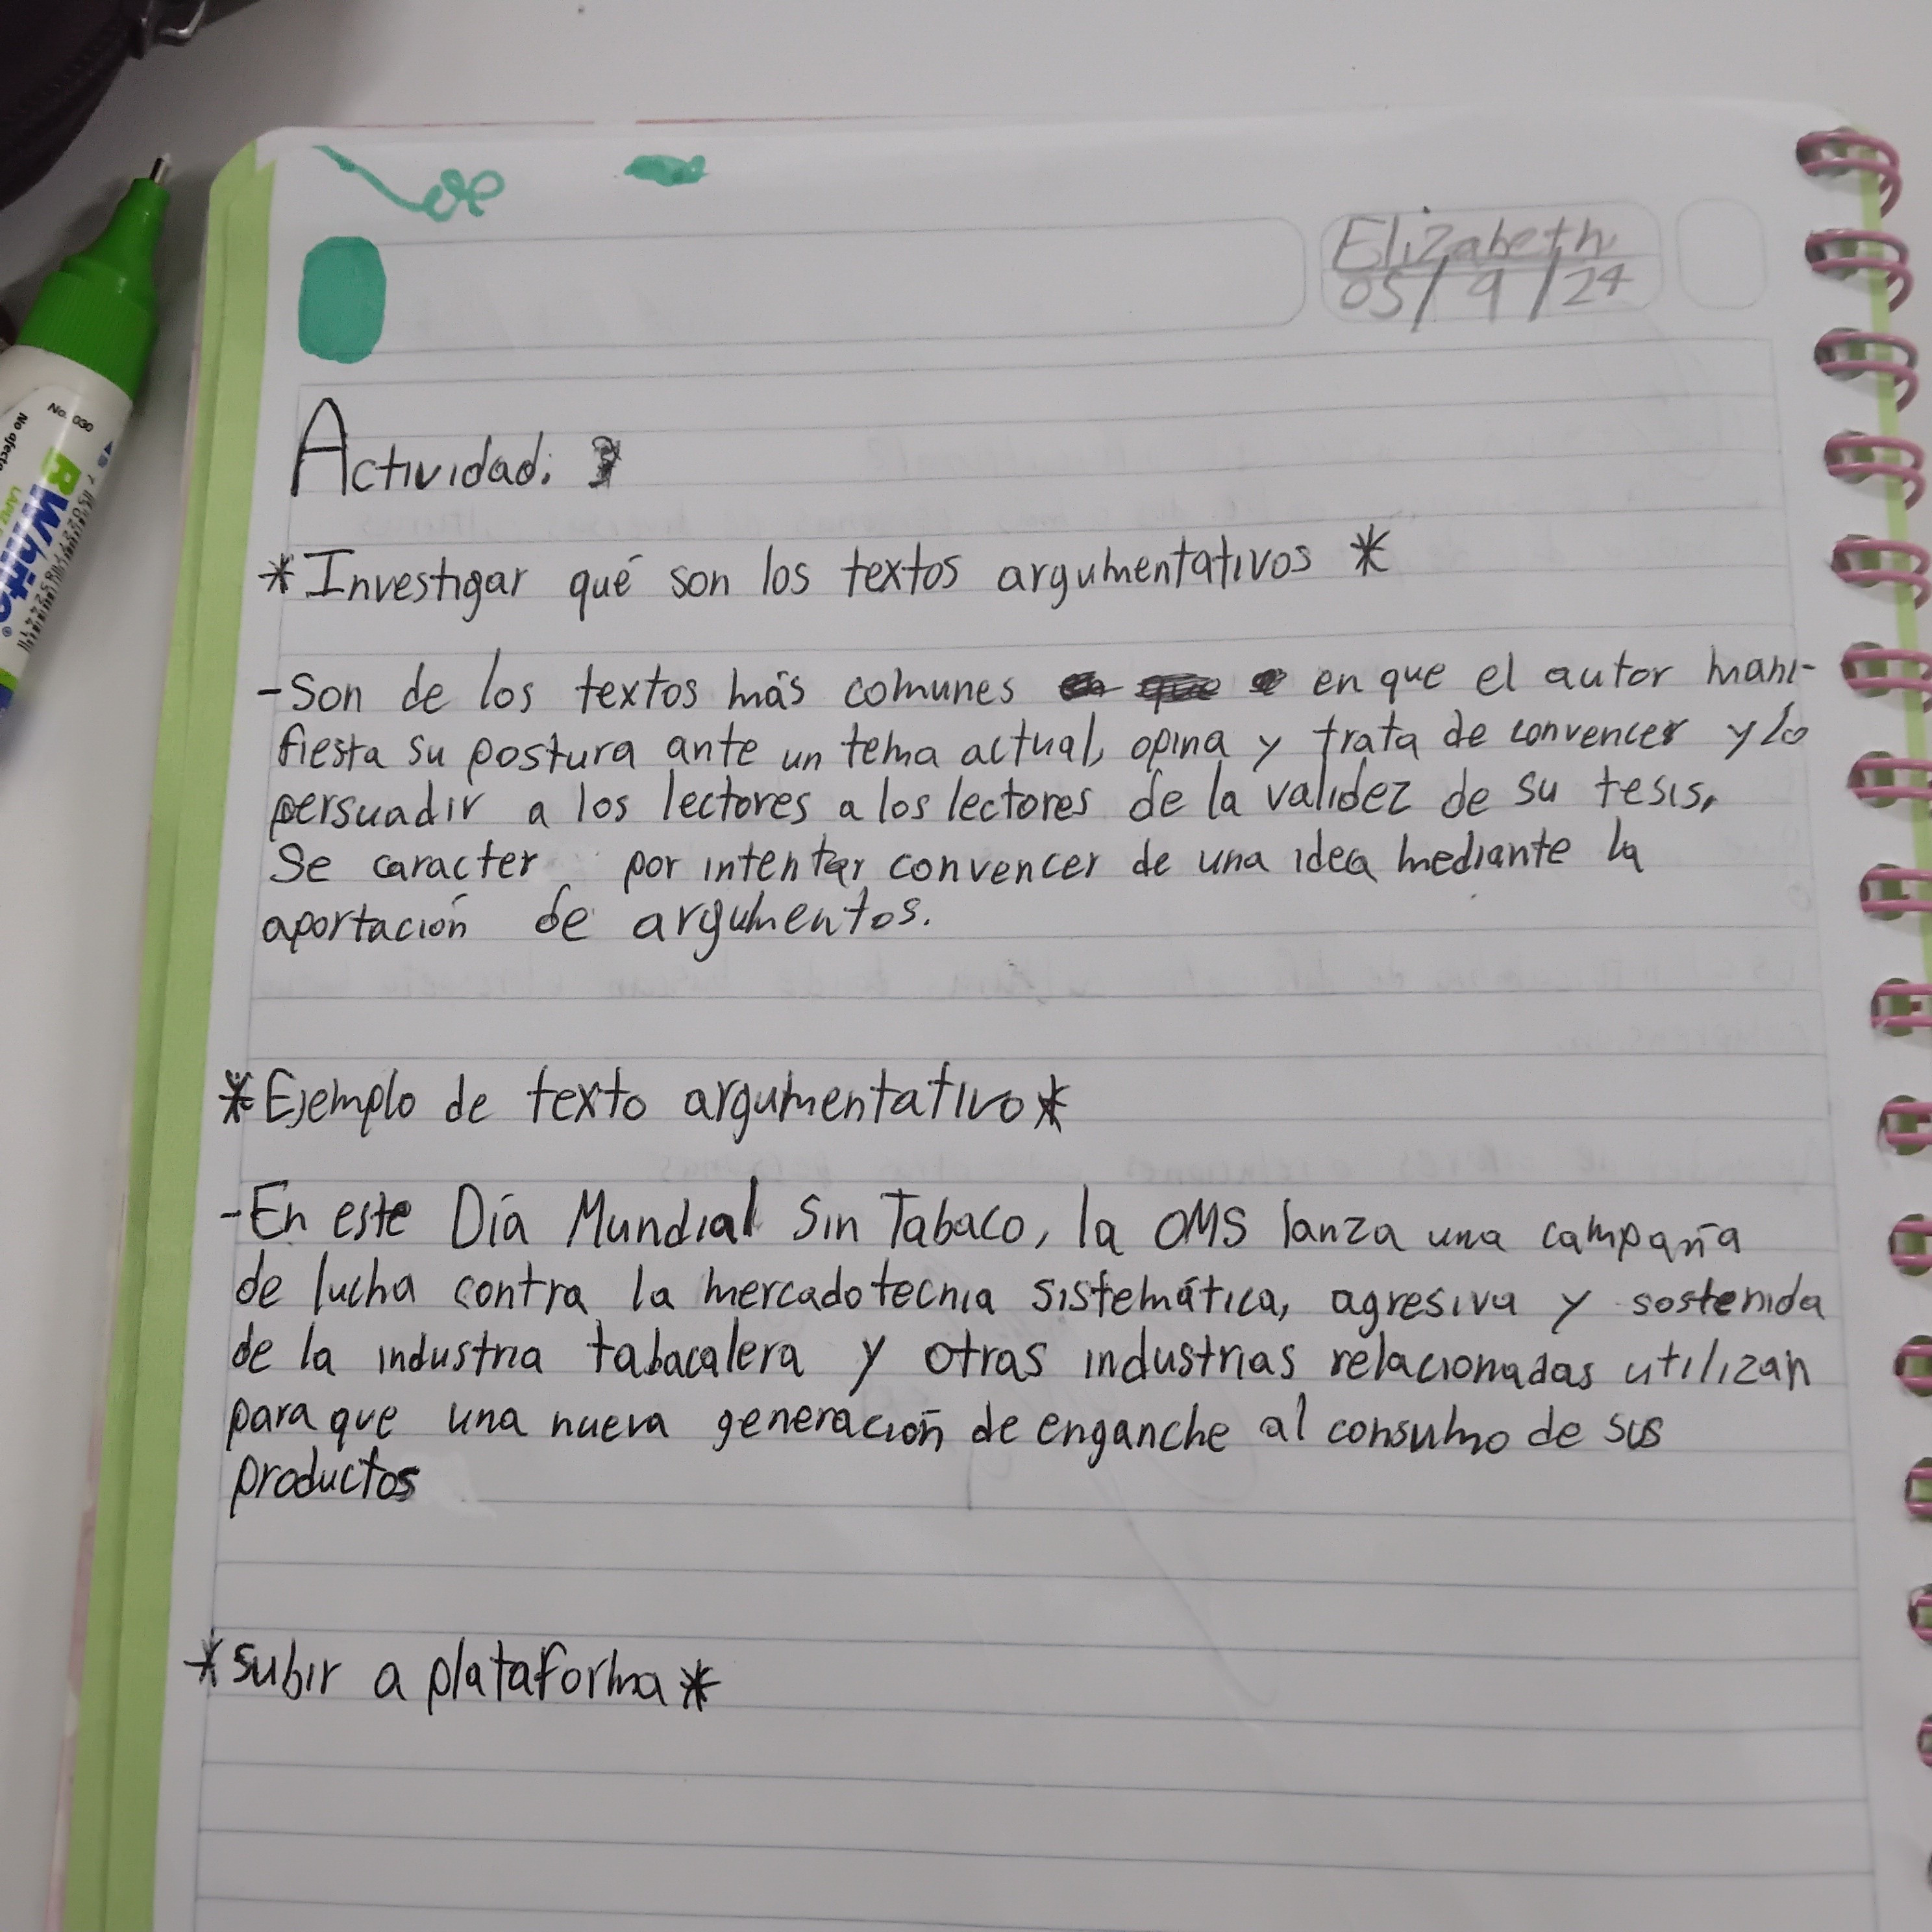 Elizabeth
05/9/24
Actividad:
*Investigar qué son los textos argumentativos *
-Son de los textos más comunes en que el autor mani-
fiesta su postura ante un tema actual, opina y trata de convencer y lo
persuadir a los lectores a los lectores de la validez de su tesis,
Se caracter por intentar convencer de una idea mediante la
aportación de argumentos.
*Ejemplo de texto argumentativo*
-En este Día Mundial Sin Tabaco, la OMS lanza una campaña
de lucha contra la mercadotecnia sistemática, agresiva y sostenida
de la industria tabacalera y otras industrias relacionadas utilizan
para que una nueva generación de enganche al consumo de sus
productos
*subir a plataforma*
No. 030
No afecta
BWhite